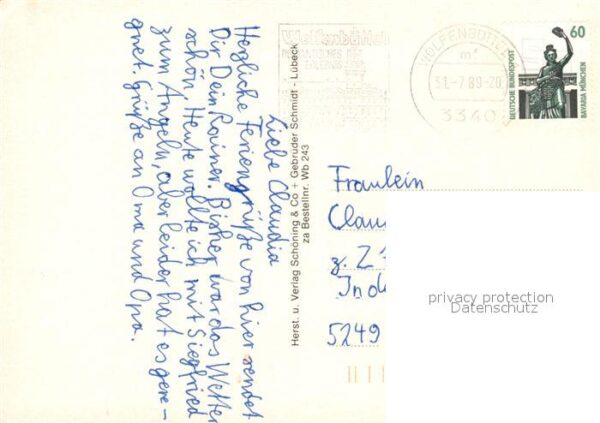 Liebe Claudia
Herzliche Feriengrüße von hier sendet
Dir Dein Rainer. Bisher war das Wetter
schön, Heute wollte ich mit Siegfried
zum Angeln, aber leider hat es gere-
gnet. Grüße an Oma und Opa.
Herst. u. Verlag Schöning & Co + Gebrüder Schmidt - Lübeck
za Bestellnr. Wb 243
31.-7.89-20
3340
60
DEUTSCHE BUNDESPOST
BAVARIA MÜNCHEN
Fräulein
Clau
z. Z
Ind
5249
privacy protection
Datenschutz